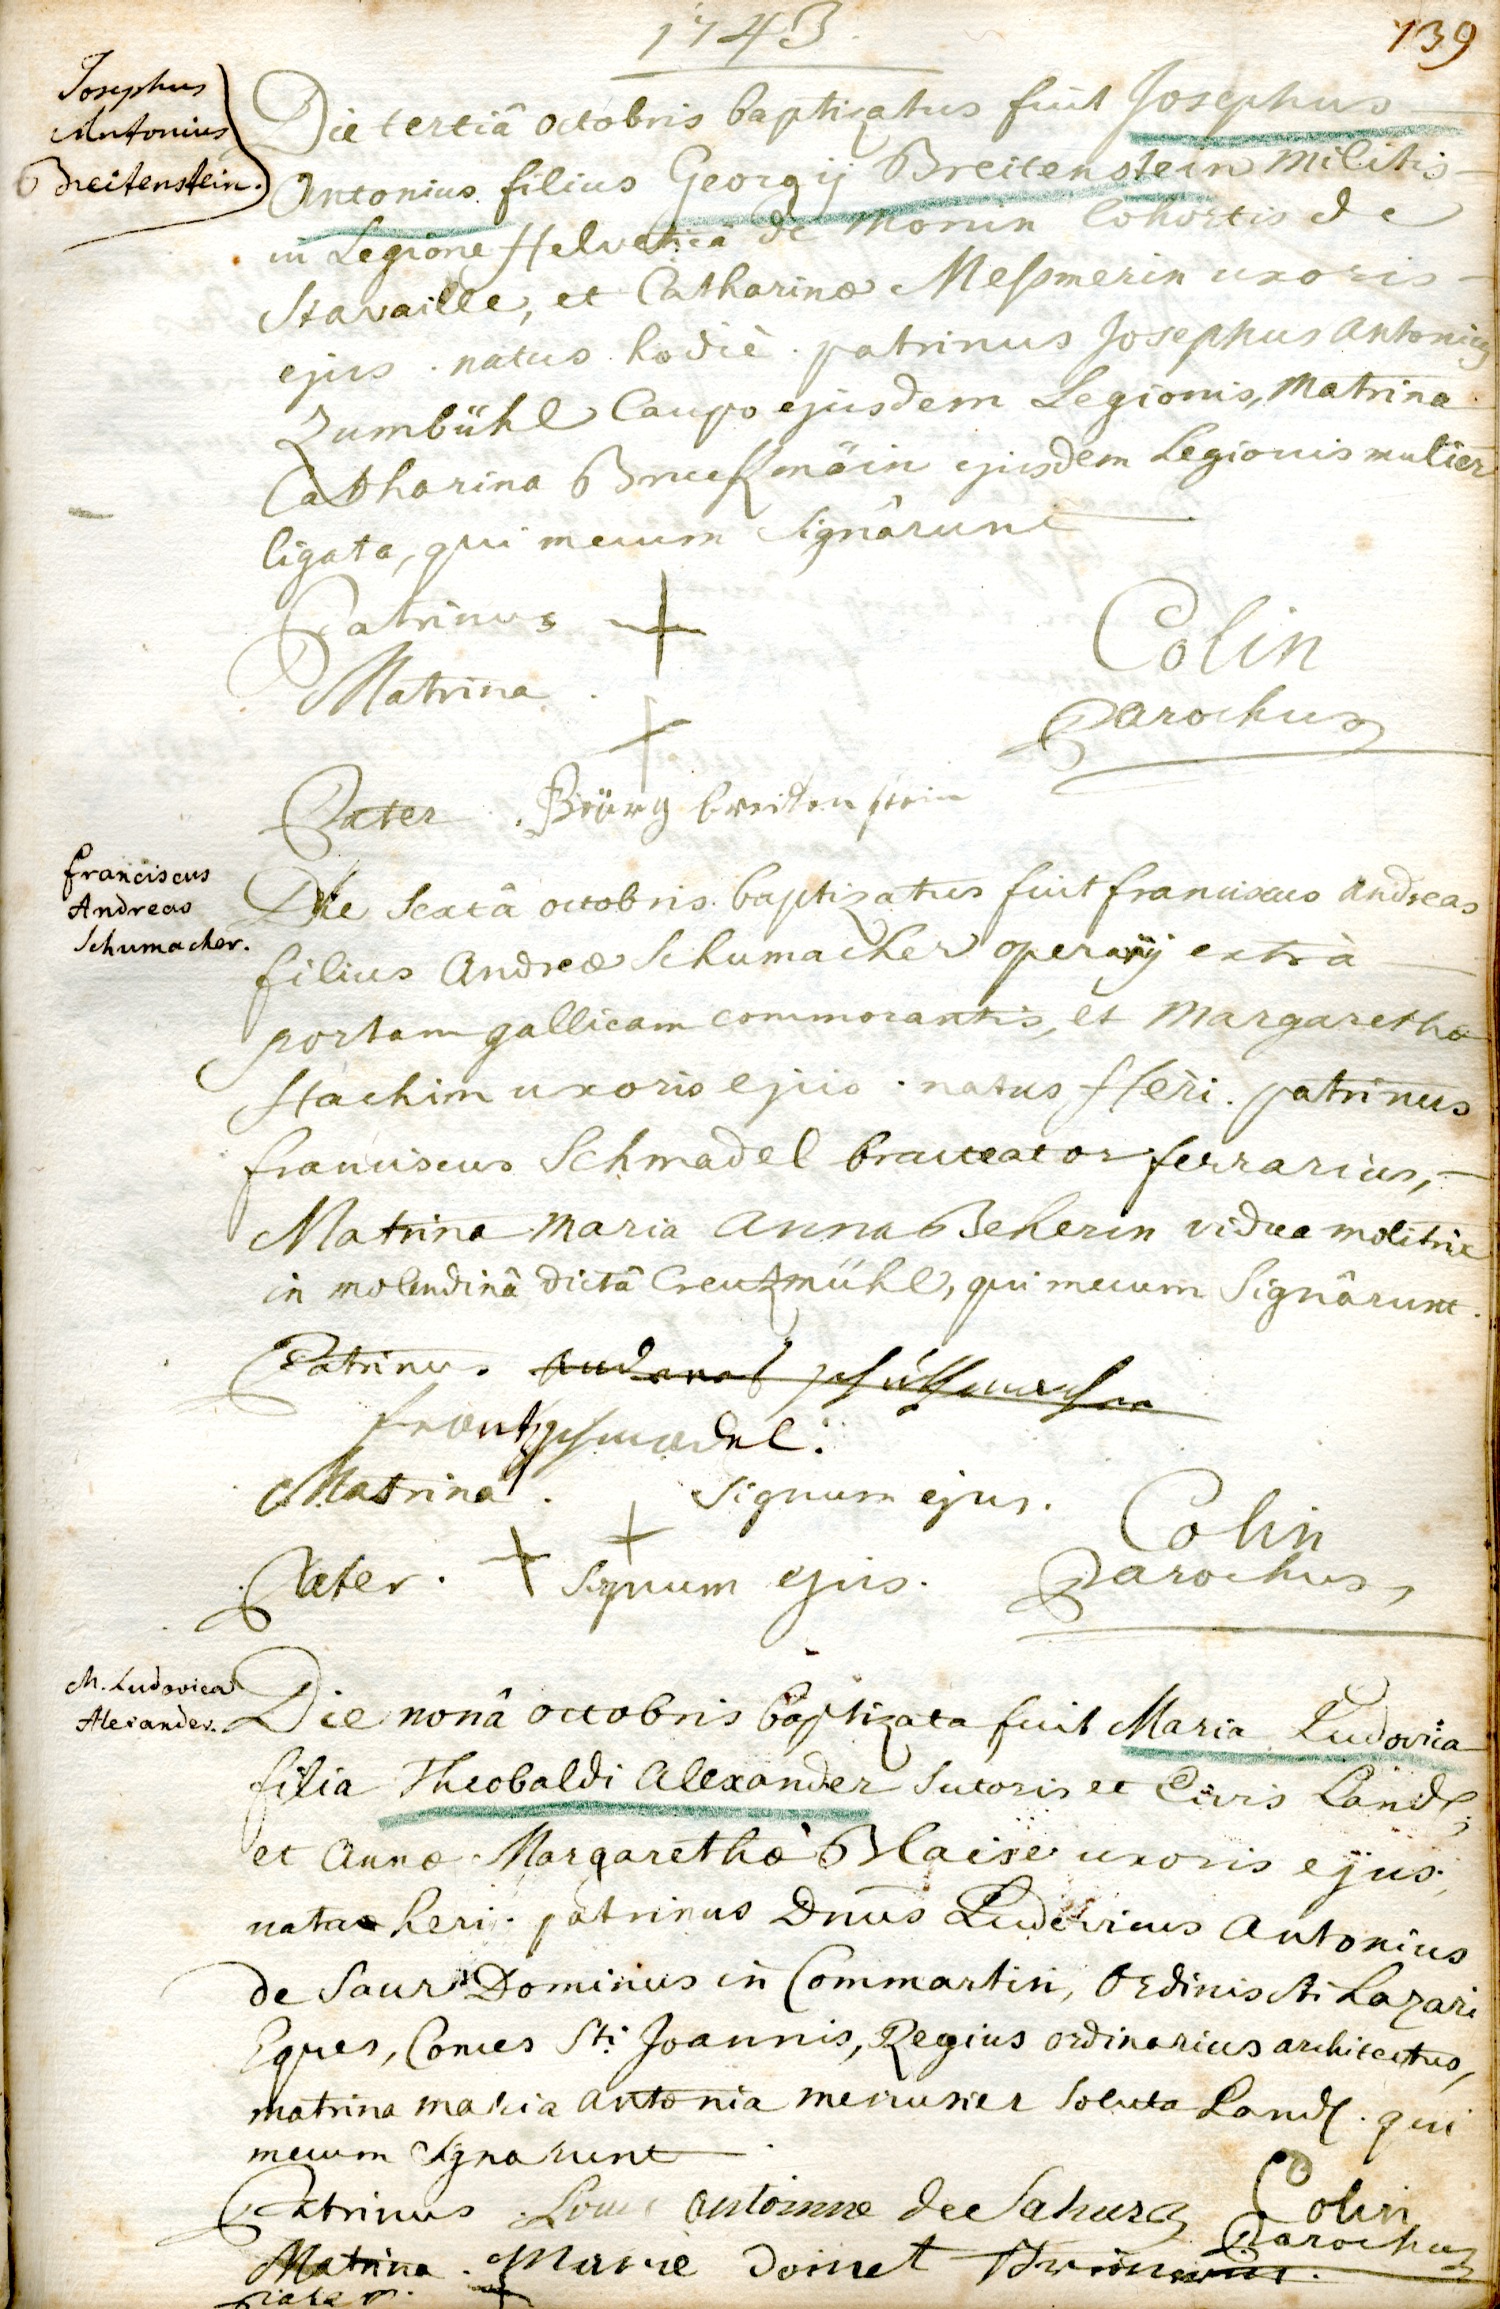 1743.
139
Josephus
Antonius
Breitenstein.
Die tertiâ octobris baptizatus fuit Josephus
Antonius filius Georgij Breitenstein militis
in Legione Helveticâ de Monin Cohortis de
Stavaille, et Catharinæ Messmerin uxoris
ejus. natus hodiè. patrinus Josephus Antonius
Zumbühl Caupo ejusdem Legionis, Matrina
Catharina ejusdem Legionis mulier
ligata, qui mecum Signârunt
Patrinus +
Matrina. +
Colin
Parochus
Pater. Görg breitenstein
Franciscus
Andreas
Schumacher.
Die Sextâ octobris baptizatus fuit franciscus Andreas
filius Andreæ Schumacher operarij extrà
portam gallicam commorantis, et Margarethæ
Stachim uxoris ejus. natus Heri. patrinus
franciscus Schmadel bracteator ferrarius,
Matrina Maria Anna Beherin vidua molitrix
in molendinâ dictâ Creutzmühl, qui mecum Signârunt.
Patrinus
frantz schmadel.
Matrina. + Signum ejus.
Pater. + Signum ejus.
Colin
Parochus
M. Ludovica
Alexander.
Die nonâ octobris baptizata fuit Maria Ludovica
filia Theobaldi Alexander Sutoris et Civis Land.
et Annæ Margarethæ Blaise uxoris ejus,
nata heri. patrinus Dnus Ludovicus Antonius
de Saur Dominus in Commartin, Ordinis Sti Lazari
Eques, Comes Sti Joannis, Regius ordinarius architectus,
matrina maria antonia menusier Soluta Land. qui
mecum Signarunt
Patrinus Louis antoinne de Sahurs
Colin
Parochus
Matrina. Marie
Pater.